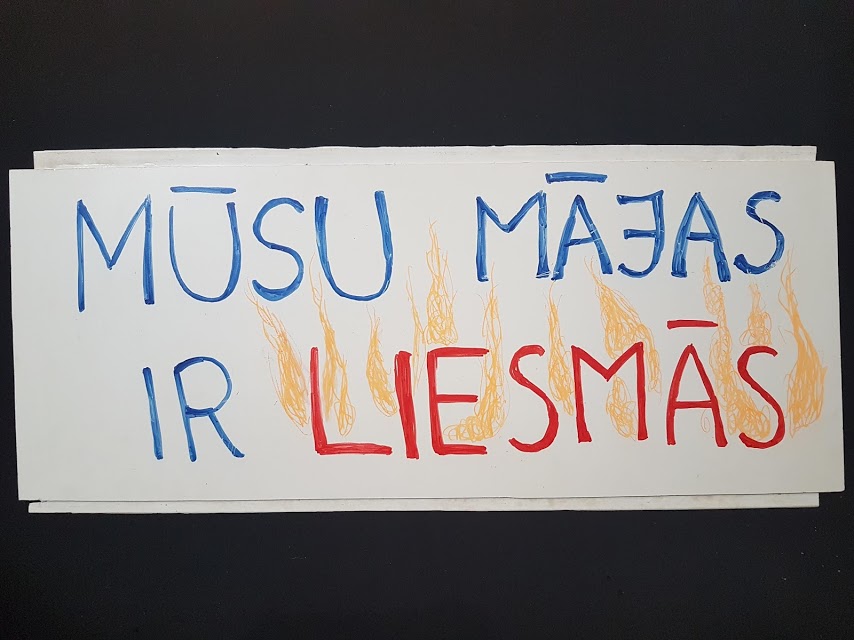 MŪSU MĀJAS
IR LIESMĀS